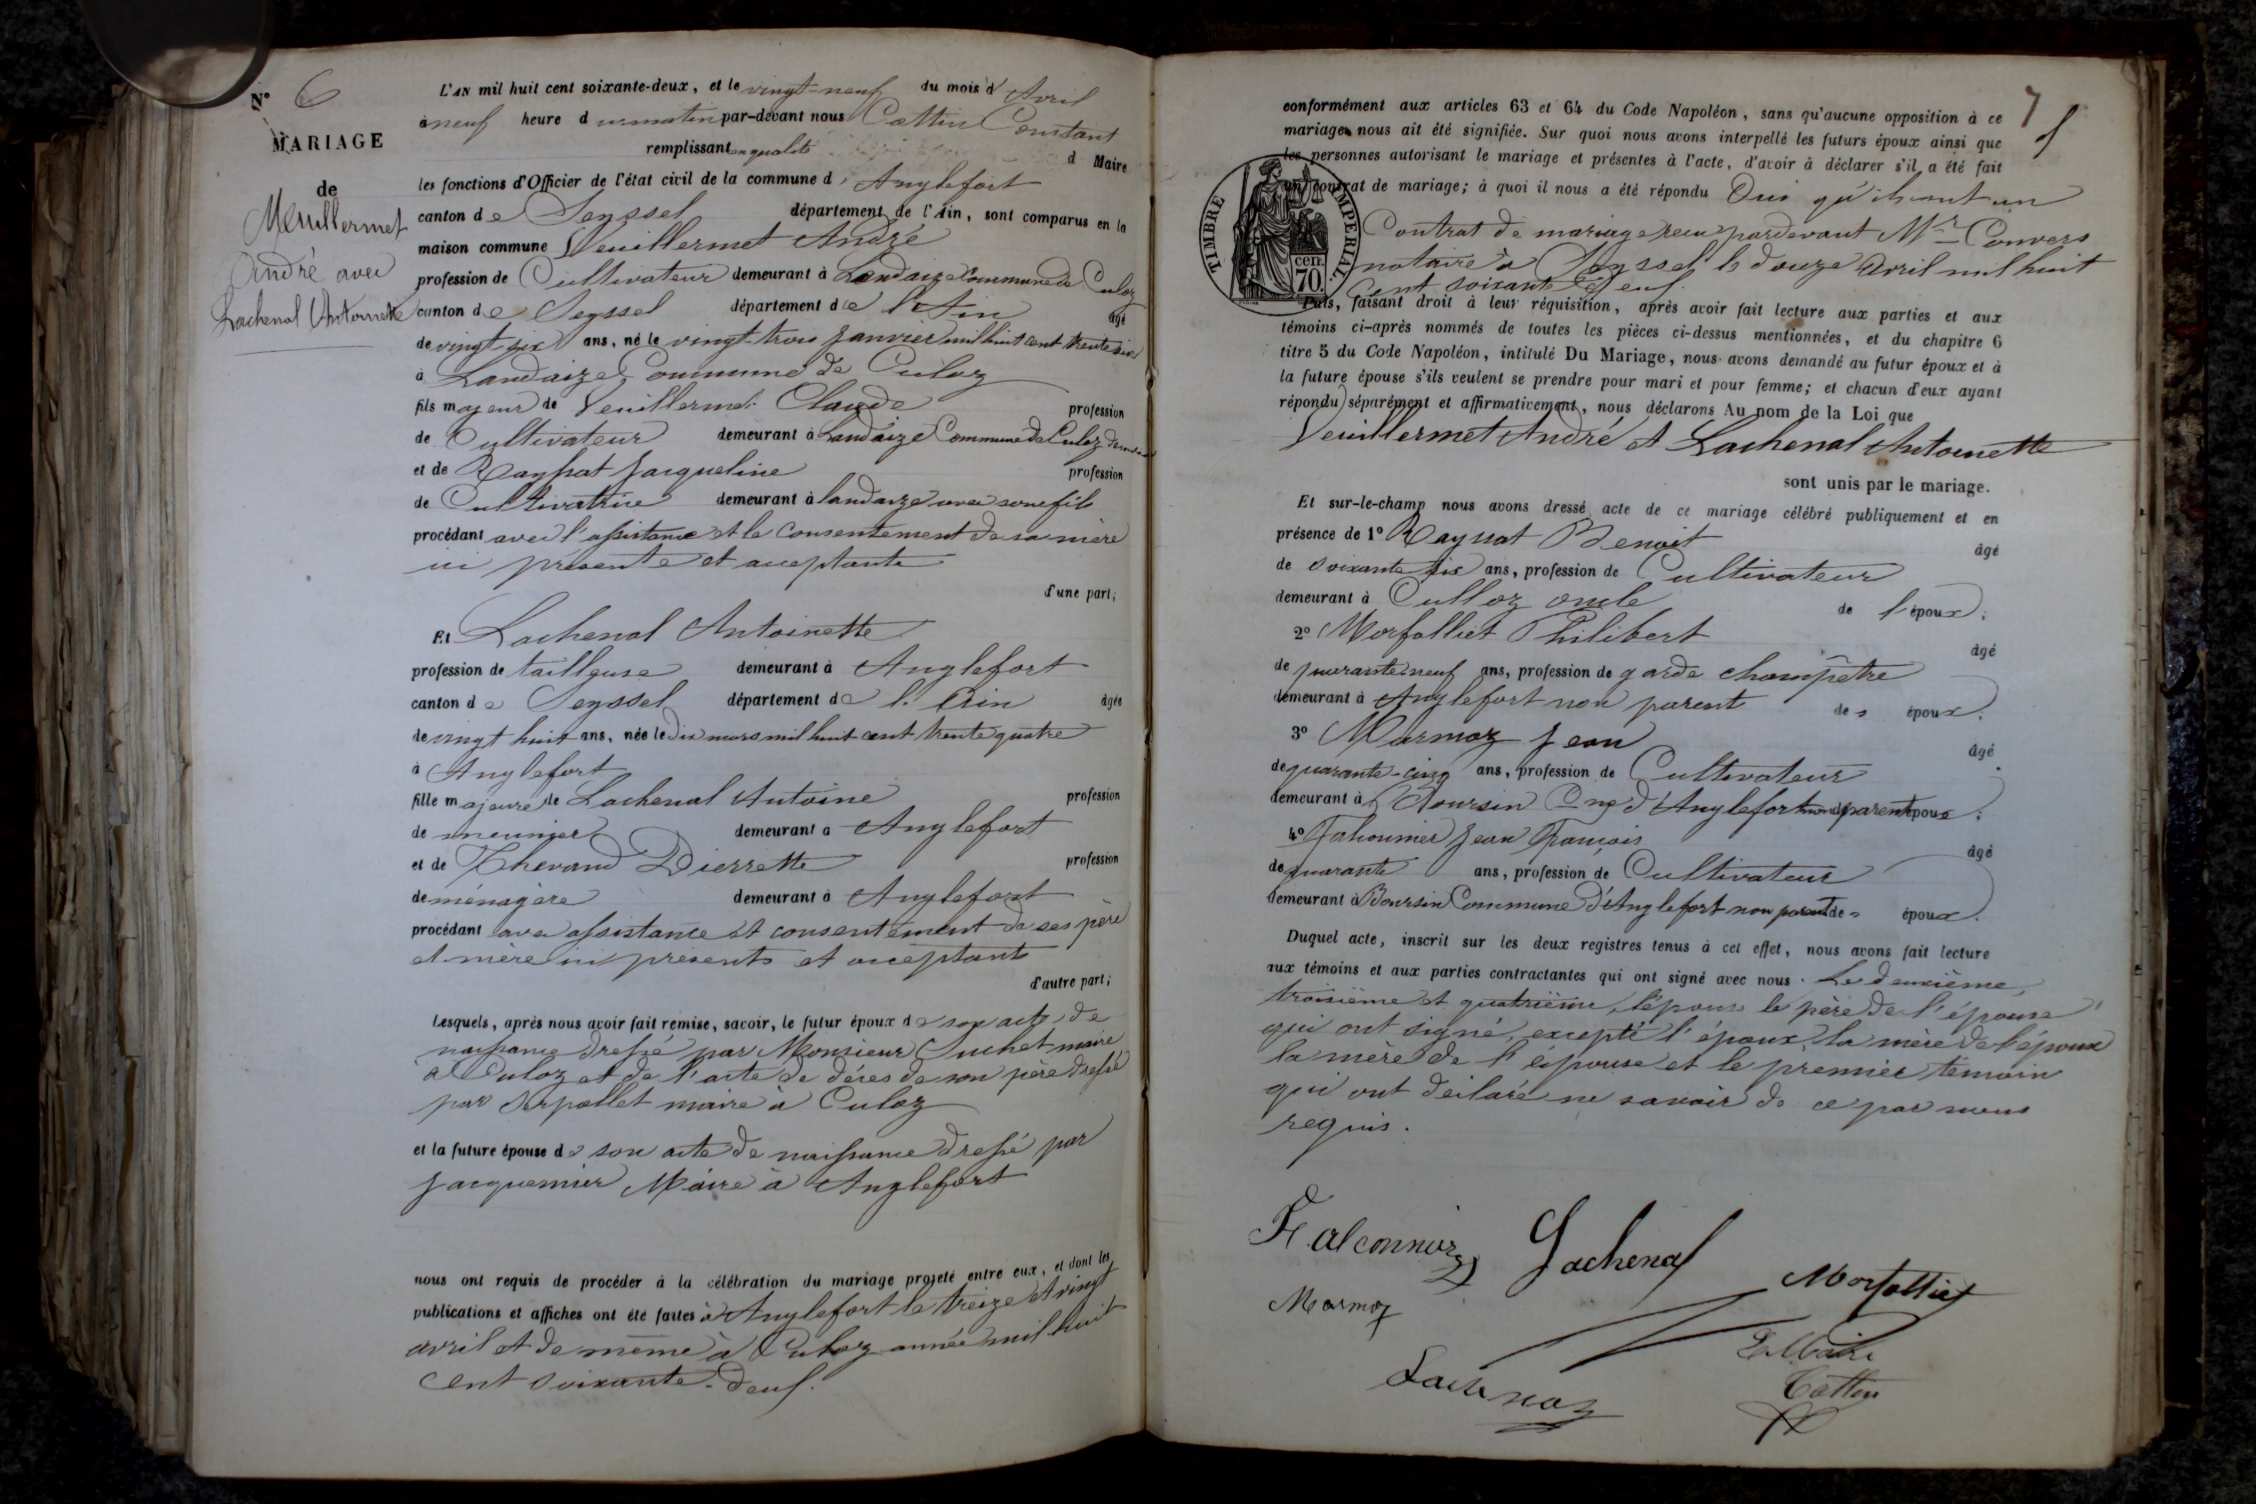 N° 6
MARIAGE
de
Meuillermet
André avec
Lachenal Antoinette
L'AN mil huit cent soixante-deux, et le vingt-neuf du mois d'Avril
à neuf heure d u matin par-devant nous Cattin Constant
remplissant en qualité d Maire
les fonctions d'Officier de l'état civil de la commune d' Anglefort
canton de Seyssel département de l'Ain, sont comparus en la
maison commune Veuillermet André
profession de Cultivateur demeurant à Landaize Commune de Culoz
canton de Seyssel département de l'Ain âgé
de vingt-six ans, né le vingt-trois Janvier mil huit cent trente six
à Landaize Commune de Culoz
fils majeur de Veuillermet Claude profession
de Cultivateur demeurant à Landaize Commune de Culoz
et de Rayssat Jacqueline profession
de Cultivatrice demeurant à landaize avec son fils
procédant avec l'assistance et le consentement de sa mère
ici présente et acceptante
d'une part;
Et Lachenal Antoinette
profession de tailleuse demeurant à Anglefort
canton de Seyssel département de l'Ain âgée
de vingt huit ans, née le Dix mars mil huit cent trente quatre
à Anglefort
fille majeure de Lachenal Antoine profession
de meunier demeurant à Anglefort
et de Thevand Pierrette profession
de ménagère demeurant à Anglefort
procédant avec assistance et consentement de ses père
et mère ici présents et acceptants
d'autre part;
Lesquels, après nous avoir fait remise, savoir, le futur époux de son acte de
naissance dressé par Monsieur Suchet maire
à Culoz et de l'acte de décès de son père dressé
par Serpollet maire à Culoz
et la future épouse de son acte de naissance dressé par
Jacquemier Maire à Anglefort
nous ont requis de procéder à la célébration du mariage projeté entre eux, et dont les
publications et affiches ont été faites à Anglefort le treize et vingt
avril et de même à Culoz année mil huit
cent soixante-deux.
7
conformément aux articles 63 et 64 du Code Napoléon, sans qu'aucune opposition à ce
mariage nous ait été signifiée. Sur quoi nous avons interpellé les futurs époux ainsi que
les personnes autorisant le mariage et présentes à l'acte, d'avoir à déclarer s'il a été fait
un contrat de mariage; à quoi il nous a été répondu Oui qu'ils ont un
TIMBRE IMPÉRIAL
cen. 70.
Contrat de mariage reçu pardevant Mr Convers
notaire à Seyssel le douze avril mil huit
cent soixante deux.
Puis, faisant droit à leur réquisition, après avoir fait lecture aux parties et aux
témoins ci-après nommés de toutes les pièces ci-dessus mentionnées, et du chapitre 6
titre 5 du Code Napoléon, intitulé Du Mariage, nous avons demandé au futur époux et à
la future épouse s'ils veulent se prendre pour mari et pour femme; et chacun d'eux ayant
répondu séparément et affirmativement, nous déclarons Au nom de la Loi que
Veuillermet André et Lachenal Antoinette
sont unis par le mariage.
Et sur-le-champ nous avons dressé acte de ce mariage célébré publiquement et en
présence de 1° Rayssat Benoit âgé
de soixante six ans, profession de Cultivateur
demeurant à Culloz oncle de l'époux;
2° Morfalliet Philibert âgé
de quarante neuf ans, profession de garde champêtre
demeurant à Anglefort non parent des époux.
3° Marmoz Jean âgé
de quarante-cinq ans, profession de Cultivateur
demeurant à Boursin Cne d'Anglefort non parent époux;
4° Falconnier Jean François âgé
de quarante ans, profession de Cultivateur
demeurant à Boursin Commune d'Anglefort non parent des époux.
Duquel acte, inscrit sur les deux registres tenus à cet effet, nous avons fait lecture
aux témoins et aux parties contractantes qui ont signé avec nous. Le deuxième,
troisième et quatrième, l'épouse le père de l'épouse
qui ont signé, excepté l'époux la mère de l'époux
la mère de l'épouse et le premier témoin
qui ont déclaré ne savoir de ce par nous
requis.
Falconnier Lachenal
Morfalliet
Marmoz
Le Maire
Cattin